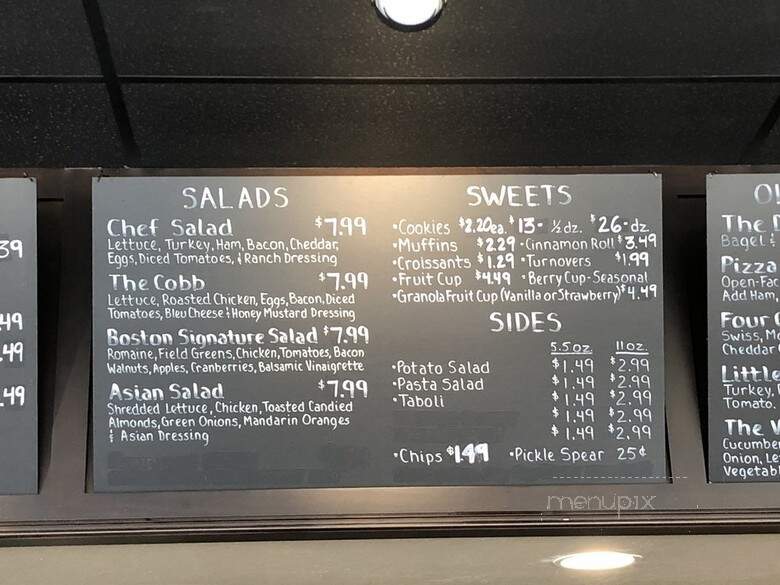 39
49
49
49
SALADS
Chef Salad $7.99
Lettuce, Turkey, Ham, Bacon, Cheddar,
Eggs, Diced Tomatoes, & Ranch Dressing
The Cobb $7.99
Lettuce, Roasted Chicken, Eggs, Bacon, Diced
Tomatoes, Bleu Cheese & Honey Mustard Dressing
Boston Signature Salad $7.99
Romaine, Field Greens, Chicken, Tomatoes, Bacon
Walnuts, Apples, Cranberries, Balsamic Vinaigrette
Asian Salad $7.99
Shredded Lettuce, Chicken, Toasted Candied
Almonds, Green Onions, Mandarin Oranges
& Asian Dressing
SWEETS
•Cookies $2.20ea. $13- ½ dz. $26-dz
•Muffins $2.29 •Cinnamon Roll $3.49
•Croissants $1.29 •Turnovers $1.99
•Fruit Cup $4.49 •Berry Cup-Seasonal
•Granola Fruit Cup (Vanilla or Strawberry) $4.49
SIDES
5.5 oz. 11 oz.
•Potato Salad $1.49 $2.99
•Pasta Salad $1.49 $2.99
•Taboli $1.49 $2.99
$1.49 $2.99
$1.49 $2.99
•Chips $1.49 •Pickle Spear 25¢
The
Bagel &
Pizza
Open-Fac
Add Ham
Four
Swiss, Mo
Cheddar
Little
Turkey,
Tomato,
The
Cucumber
Onion, Le
Vegetabl
menupix